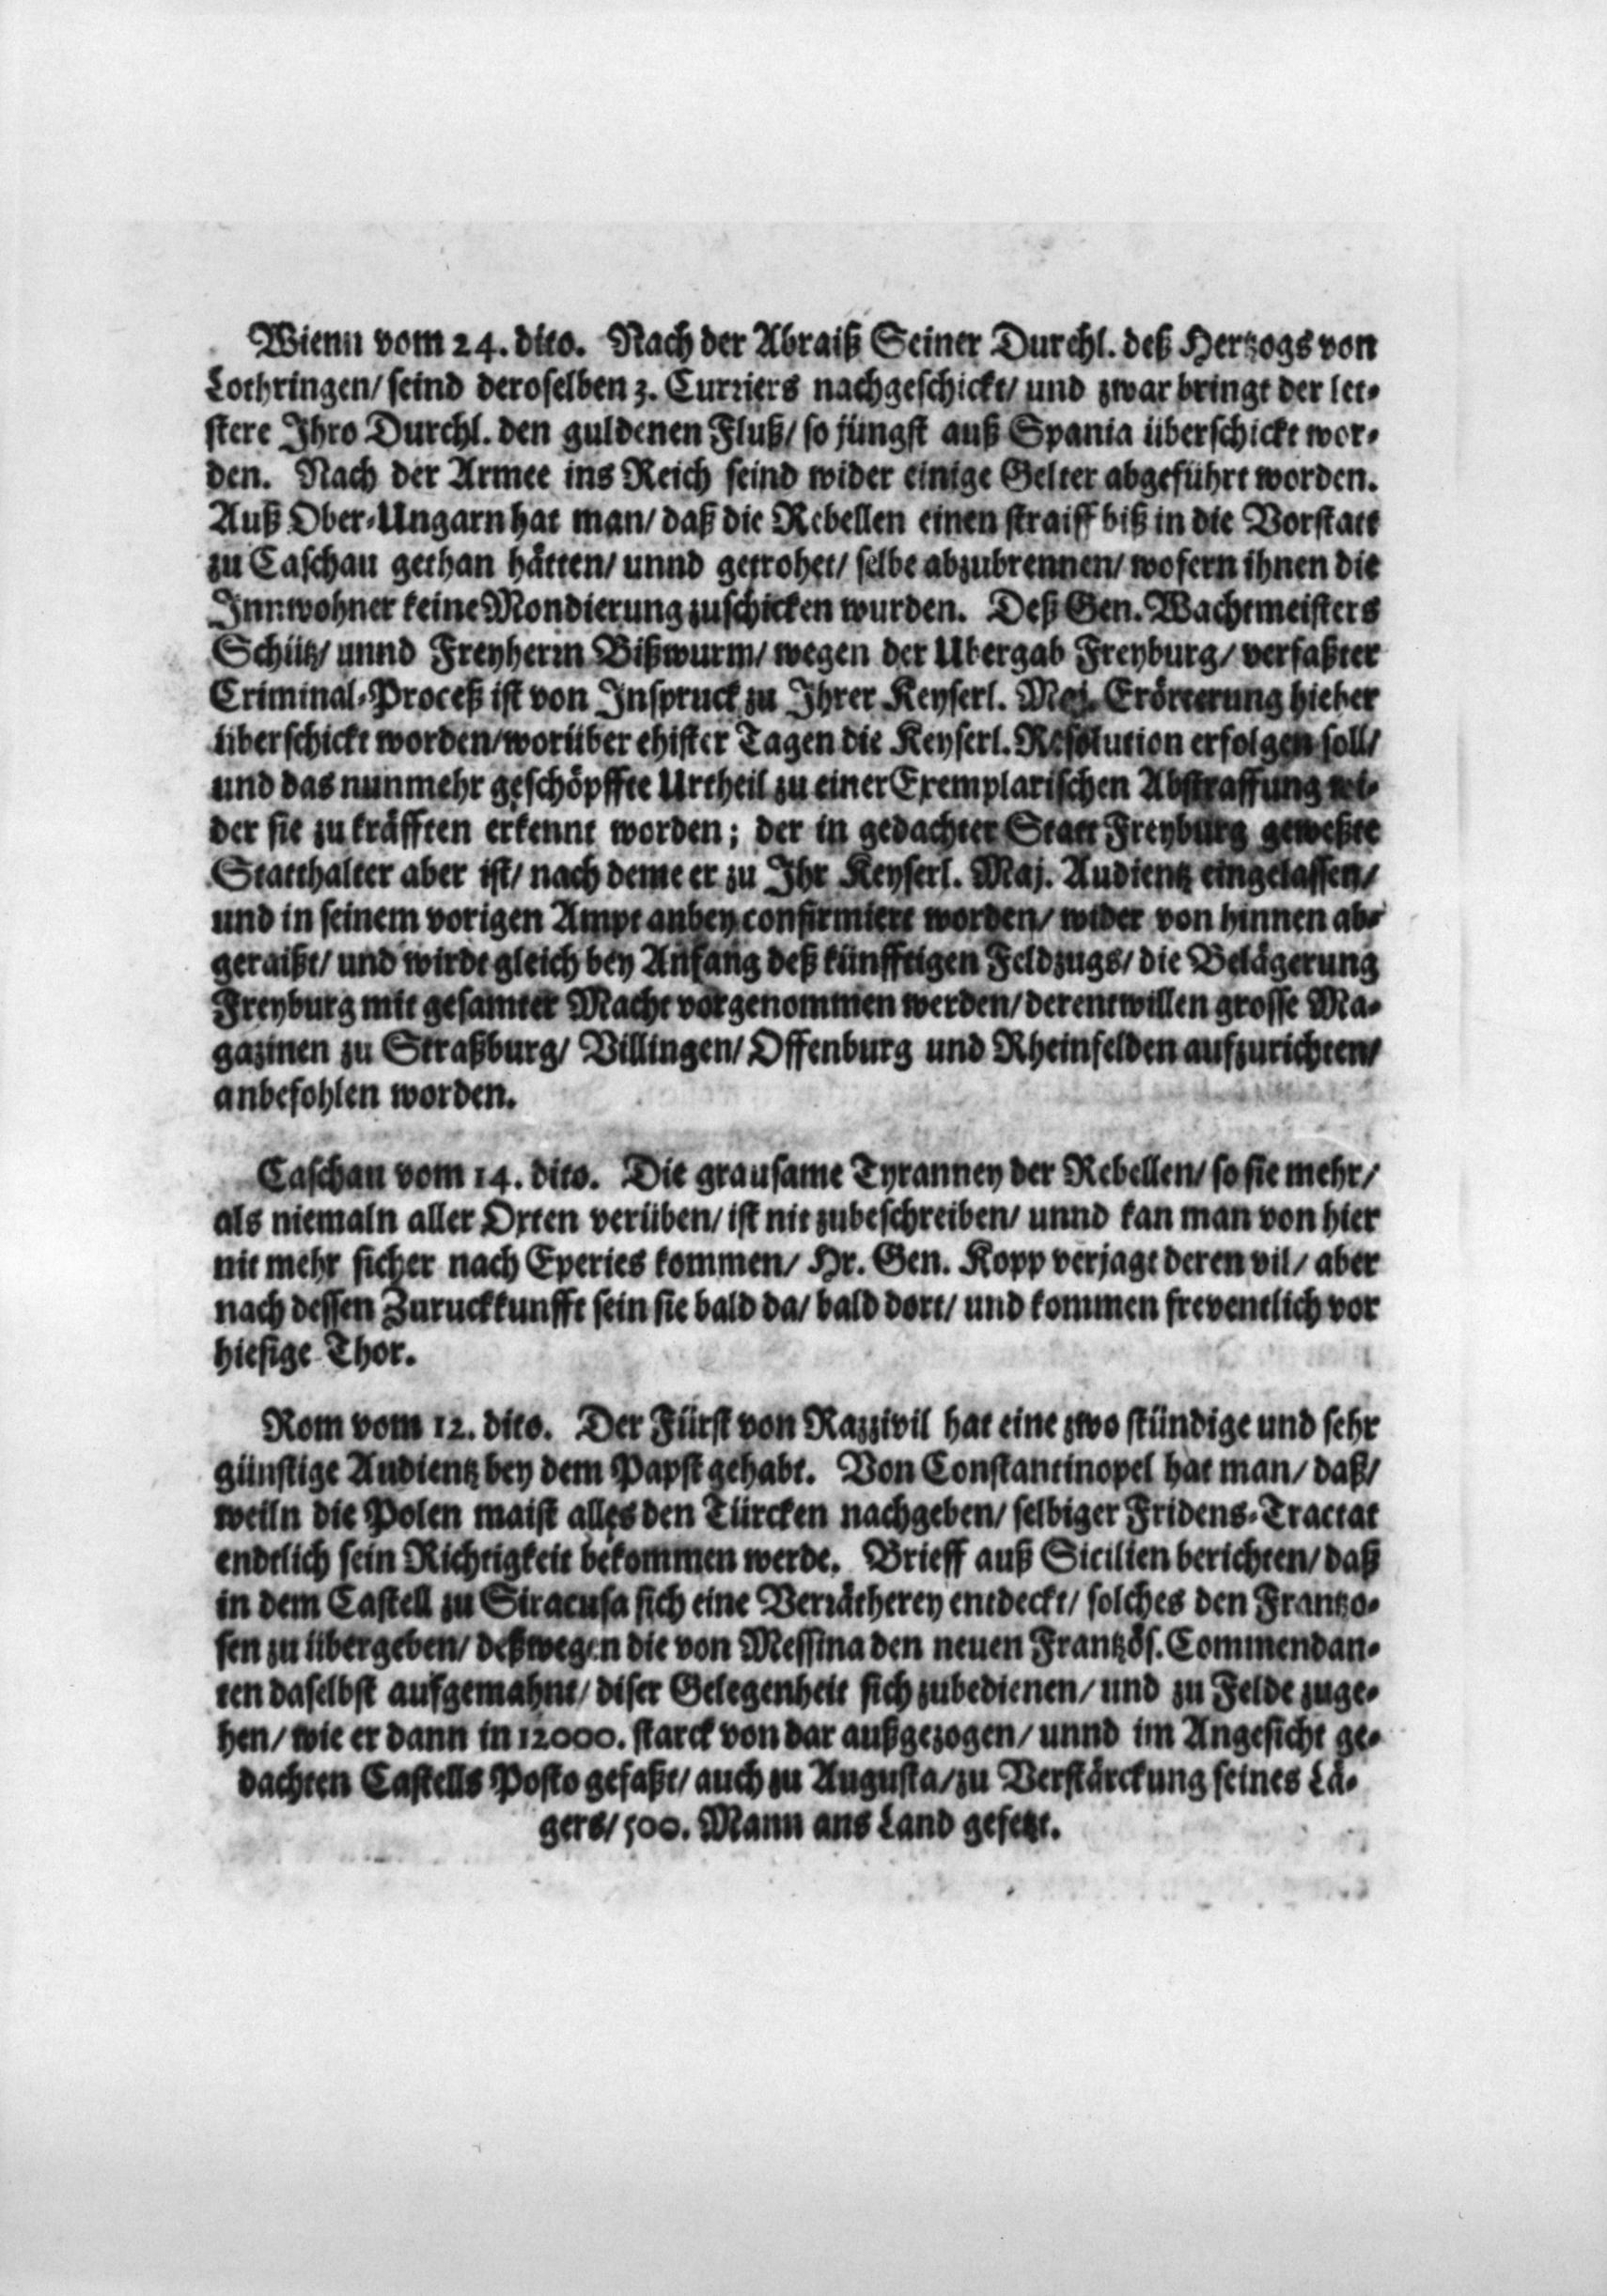 Wienn vom 24. dito. Nach der Abraiß Seiner Durchl. deß Hertzogs von
Lothringen/ seind deroselben 3. Curriers nachgeschickt/ und zwar bringt der let-
stere Ihro Durchl. den guldenen Fluß/ so jüngst auß Spania überschickt wor-
den. Nach der Armee ins Reich seind wider einige Gelter abgeführt worden.
Auß Ober-Ungarn hat man/ daß die Rebellen einen straiff biß in die Vorstatt
zu Caschau gethan hätten/ unnd getrohet/ selbe abzubrennen/ wofern ihnen die
Innwohner keine Mondierung zuschicken wurden. Deß Gen. Wachtmeisters
Schütz/ unnd Freyherrn Bißwurm/ wegen der Ubergab Freyburg/ verfaßter
Criminal-Proceß ist von Inspruck zu Ihrer Keyserl. Maj. Erörterung hieher
überschickt worden/ worüber ehister Tagen die Keyserl. Resolution erfolgen soll/
und das nunmehr geschöpffte Urtheil zu einer Exemplarischen Abstraffung wi-
der sie zu kräfften erkennt worden; der in gedachter Statt Freyburg geweßte
Statthalter aber ist/ nach deme er zu Ihr Keyserl. Maj. Audientz eingelassen/
und in seinem vorigen Ampt anbey confirmiert worden/ wider von hinnen ab-
geraißt/ und wirdt gleich bey Anfang deß künfftigen Feldzugs/ die Belägerung
Freyburg mit gesamter Macht vorgenommen werden/ derentwillen grosse Ma-
gazinen zu Straßburg/ Villingen/ Offenburg und Rheinfelden aufzurichten/
anbefohlen worden.
Caschau vom 14. dito. Die grausame Tyranney der Rebellen/ so sie mehr/
als niemaln aller Orten verüben/ ist nit zubeschreiben/ unnd kan man von hier
nit mehr sicher nach Eperies kommen/ Hr. Gen. Kopp verjagt deren vil/ aber
nach dessen Zuruckkunfft sein sie bald da/ bald dort/ und kommen freventlich vor
hiesige Thor.
Rom vom 12. dito. Der Fürst von Razzivil hat eine zwo stündige und sehr
günstige Audientz bey dem Papst gehabt. Von Constantinopel hat man/ daß/
weiln die Polen maist alles den Türcken nachgeben/ selbiger Fridens-Tractat
endtlich sein Richtigkeit bekommen werde. Brieff auß Sicilien berichten/ daß
in dem Castell zu Siracusa sich eine Verrätherey entdeckt/ solches den Frantzo-
sen zu übergeben/ deßwegen die von Messina den neuen Frantzös. Commendan-
ten daselbst aufgemahnt/ diser Gelegenheit sich zubedienen/ und zu Felde zuge-
hen/ wie er dann in 12000. starck von dar außgezogen/ unnd im Angesicht ge-
dachten Castells Posto gefaßt/ auch zu Augusta/ zu Verstärckung seines Lä-
gers/ 500. Mann ans Land gesetzt.